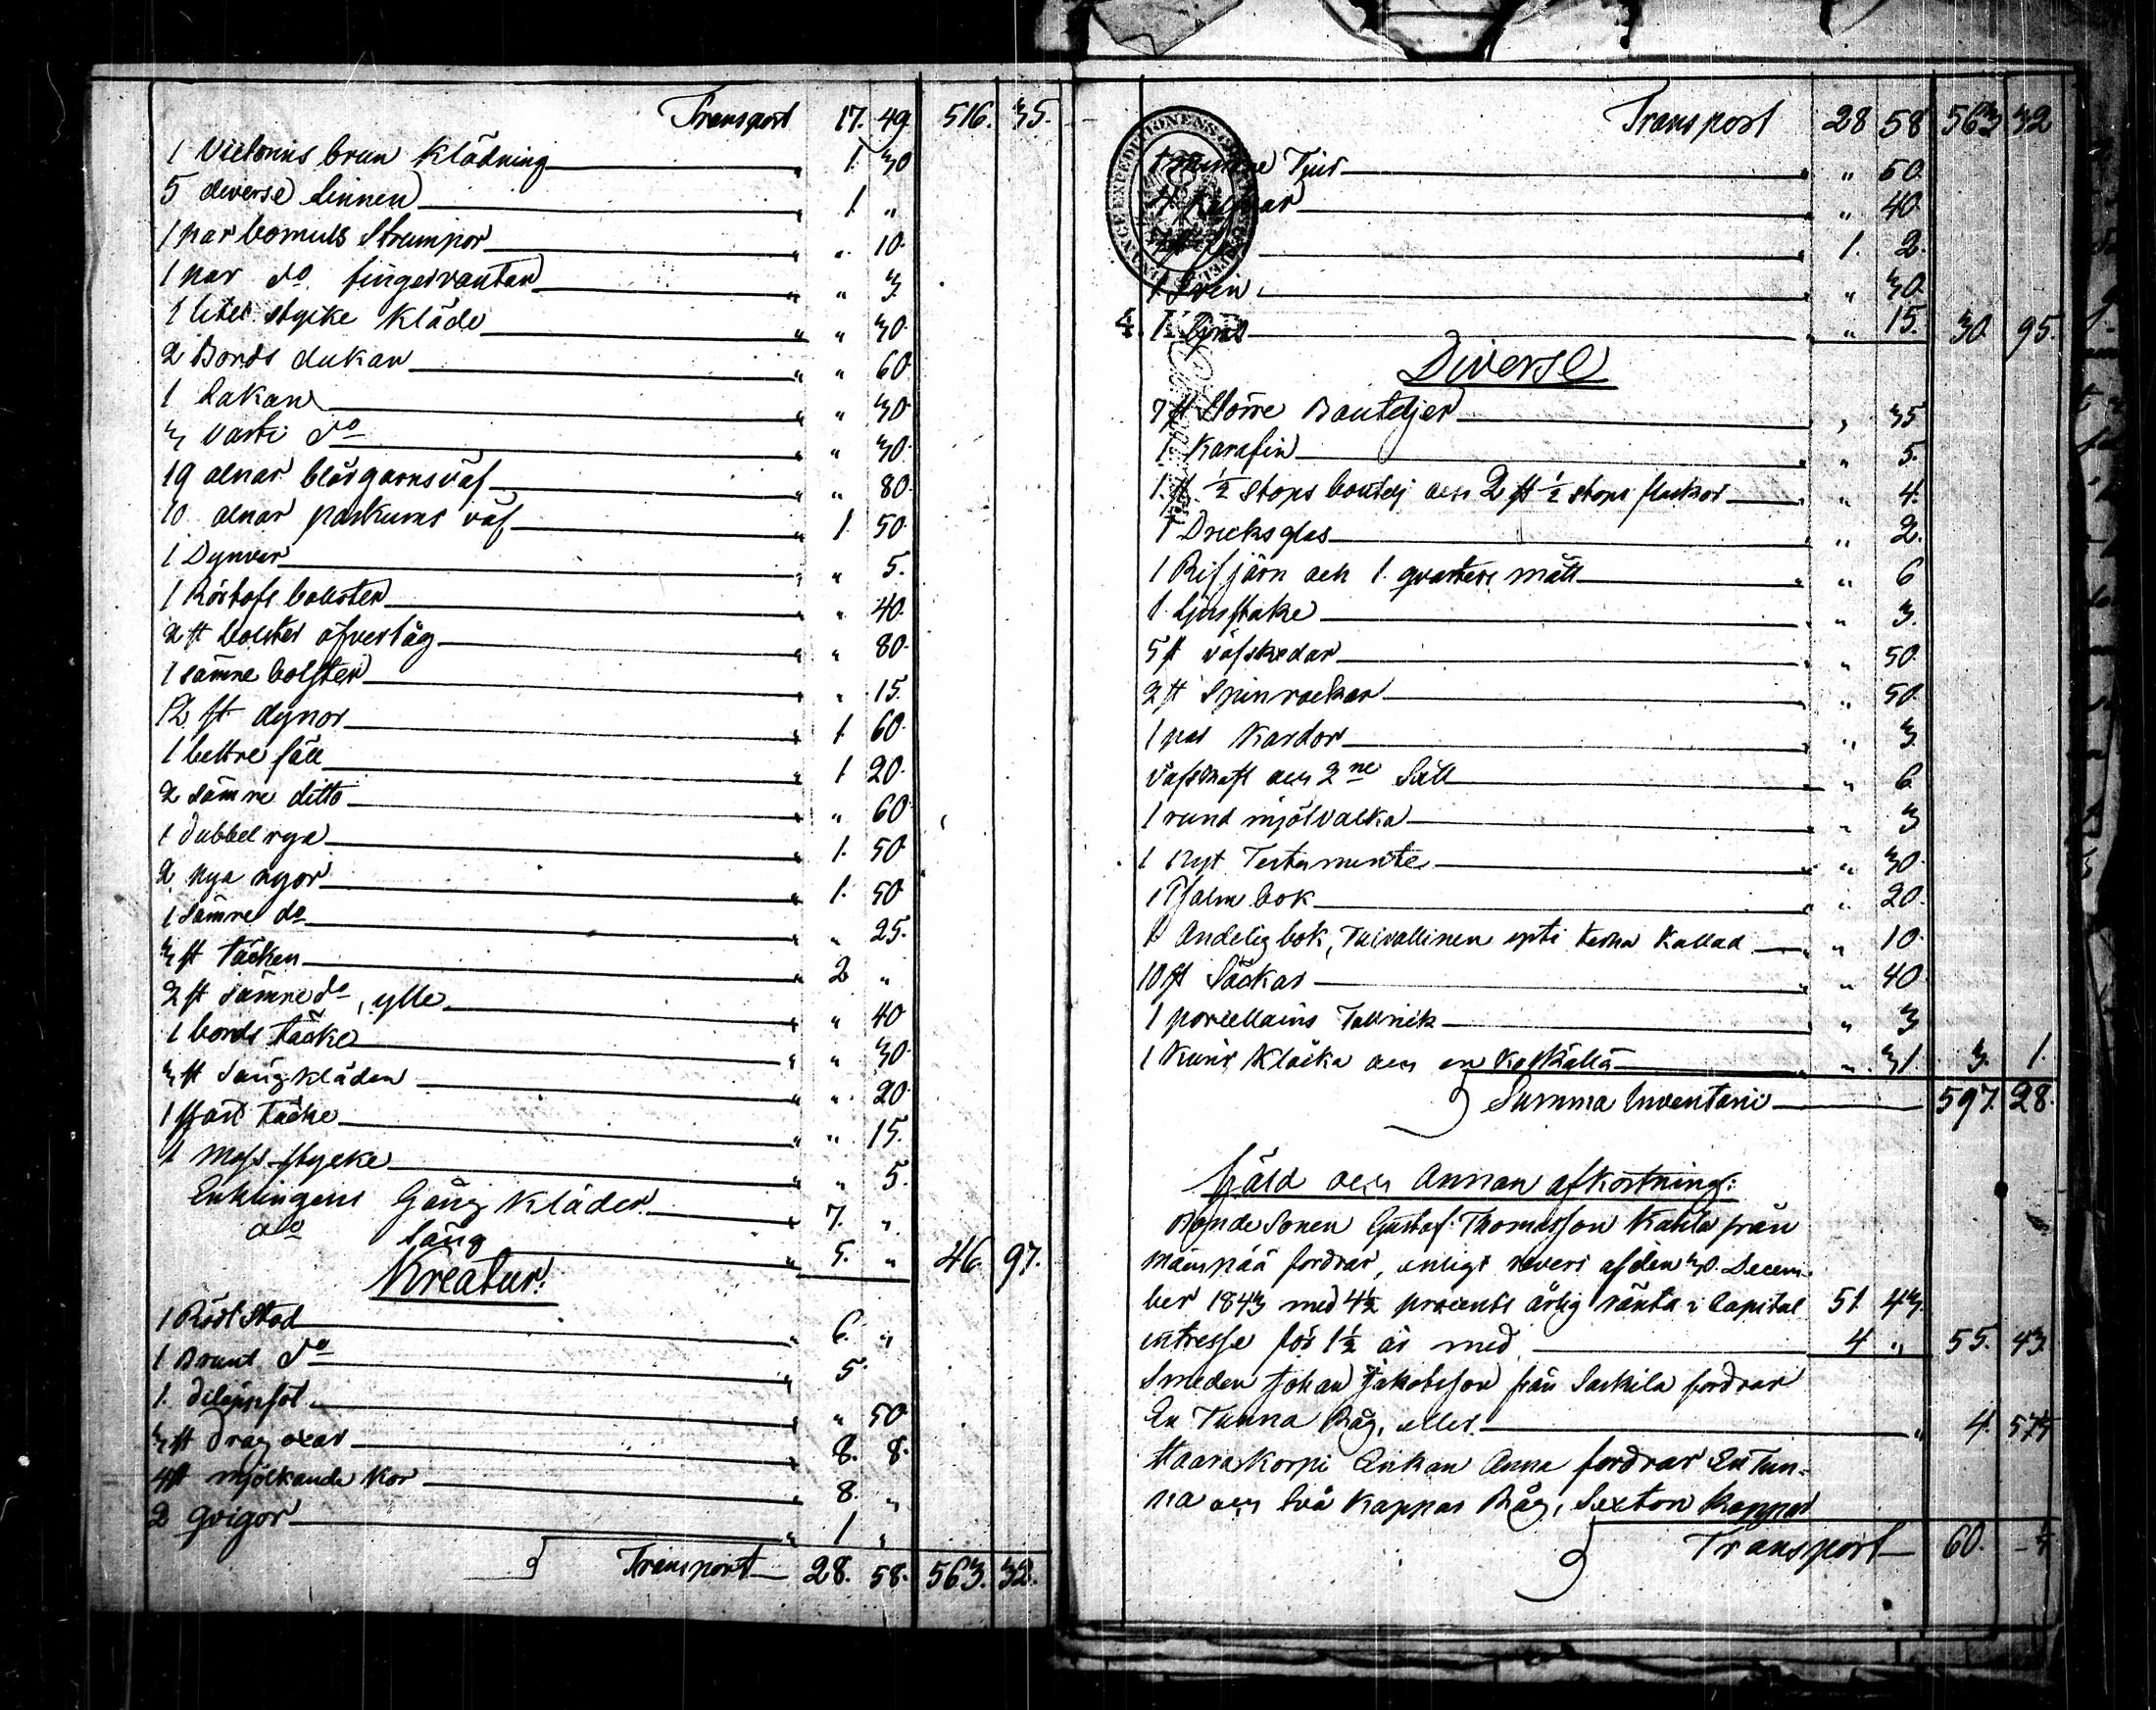 Transport 17. 49 516. 35.
1 Victorins brun Klädning „ 1. 30
5 diverse Linnen „ 1. „
1 par bomuls Strumpor „ „ 10.
1 par do fingervantar „ „ 3.
1 litet stycke Kläde „ „ 30.
2 Bords dukar „ „ 60.
1 Lakan „ „ 30.
3 do „ 30.
19 alnar blårgarnsväf „ „ 80.
10 alnar väf „ 1. 50.
1 Dynvar „ „ 5.
1 bolster „ 40.
2 st bolster öfverlag „ „ 80.
1 sämre bolster „ „ 15.
12 st dynor „ 1. 60.
1 bettre fäll „ 1. 20.
2 sämre ditto „ „ 60.
1 dubbel rya „ 1. 50.
2 nya ryor „ 1. 50
1 sämre do „ „ 25.
3 st täcken „ 2 „
2 st sämre do, ylle „ „ 40
1 bords täcke „ „ 30.
3 st Sängkläden „ „ 20.
1 täcke „ „ 15.
1 stycke „ „ 5.
Enklingens Gång Kläder „ 7. „
do Säng „ 5. „ 46. 97.
Kreatur:
1 Röd Stod „ 6. „
1 Brunt do „ 5.
1. föl „ „ 50.
3 st Drag oxar „ 8. 8.
4 st mjölkande Kor „ 8. „
2 Qvigor „ 1 „
Transport 28. 58. 563. 32.
Transport 28 58 563 32
Tjur „ „ 50.
„ „ 40.
„ 1. 2.
1 Svin „ „ 30.
4. K „ „ 15. 30. 95.
Diverse
7 st Större Bouteljer „ 35
1 Karafin „ „ 5.
1 st ½ stops boutelj och 2 st ½ stops flaskor „ „ 4.
1 Dricksglas „ „ 2.
1 Rifjärn och 1. qvarters mått „ „ 6
1 Ljusstake „ „ 3.
5 st väfskedar „ „ 50.
2 st Spinrockar „ „ 50.
1 par Kardor „ „ 3.
Väfskaft och 2ne Såll „ „ 6.
1 rund „ „ 3
1 Nytt Testamente „ „ 30.
1 Psalm bok „ „ 20.
1 Andelig bok, kallad „ „ 10.
10 st Säckar „ „ 40
1 porcellains Tallrik „ „ 3
1 Klåcka och en „ „ 31. 3. 1.
Summa Inventarie 597. 28.
Gäld och Annan afkortning:
Bonde Sonen Gustaf Thomasson från
fordrar, enligt revers af den 30. Decem-
ber 1843 med 4½ procents årlig ränta i Capital 51. 43.
intresse för 1½ år med 4 „ 55. 43.
Smeden Johan Jakobsson från fordrar
En Tunna Råg, eller „ 4. 57
Enkan Anna fordrar En Tun-
na och två Kappar Råg, Sexton Kappar
Transport 60.